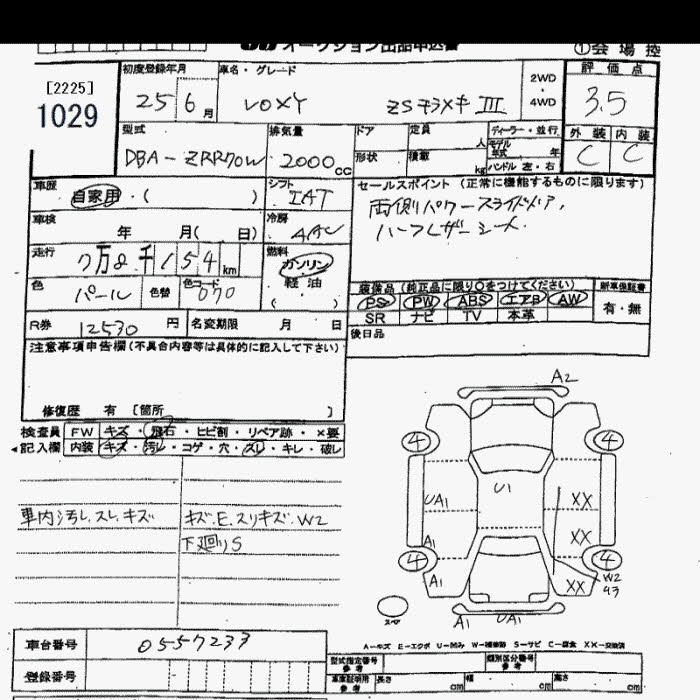 オークション出品申込書
①会場控
[2225]
1029
初度登録年月 車名・グレード 2WD・4WD 評価点
25 6月 VOXY ZS キラメキ III 3.5
外装 内装
C C
型式 排気量 ドア 定員 人 ディーラー・並行
DBA-ZRR70W 2000cc 形状 積載 kg モデル年式 年
ハンドル 左・右
車歴 自家用・( ) シフト IAT
セールスポイント (正常に機能するものに限ります)
両側パワースライドドア,
ハーフレザーシート
車検 年 月( 日) 冷房 AAC
走行 7万8千154km 燃料 ガソリン
軽油
( )
色 パール 色替 色コード 070
装備品 (純正品に限り○をつけてください) 新車保証書
PS PW ABS エアB AW 有・無
SR ナビ TV 本革
R券 12530円 名変期限 月 日
後日品
注意事項申告欄(不具合内容等は具体的に記入して下さい)
修復歴 有 [箇所 ]
検査員 FW キズ・飛石・ヒビ割・リペア跡・×要
記入欄 内装 キズ・汚レ・コゲ・穴・スレ・キレ・破レ
車内汚レ.スレ.キズ キズ.E.スリキズ.W2
下廻りS
A2
4 4
UA1 U1 XX
A1 XX
4 4
A1 XX W2
A1 UA1
スペア
A-キズ E-エクボ U-凹み W-補修跡 S-サビ C-腐食 XX-交換済
車台番号 0557233
型式指定番号 参考 類別区分番号 参考
登録番号
車庫証明用 参考 長さ cm 幅 cm 高さ cm